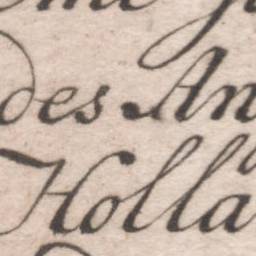 des An
Holla